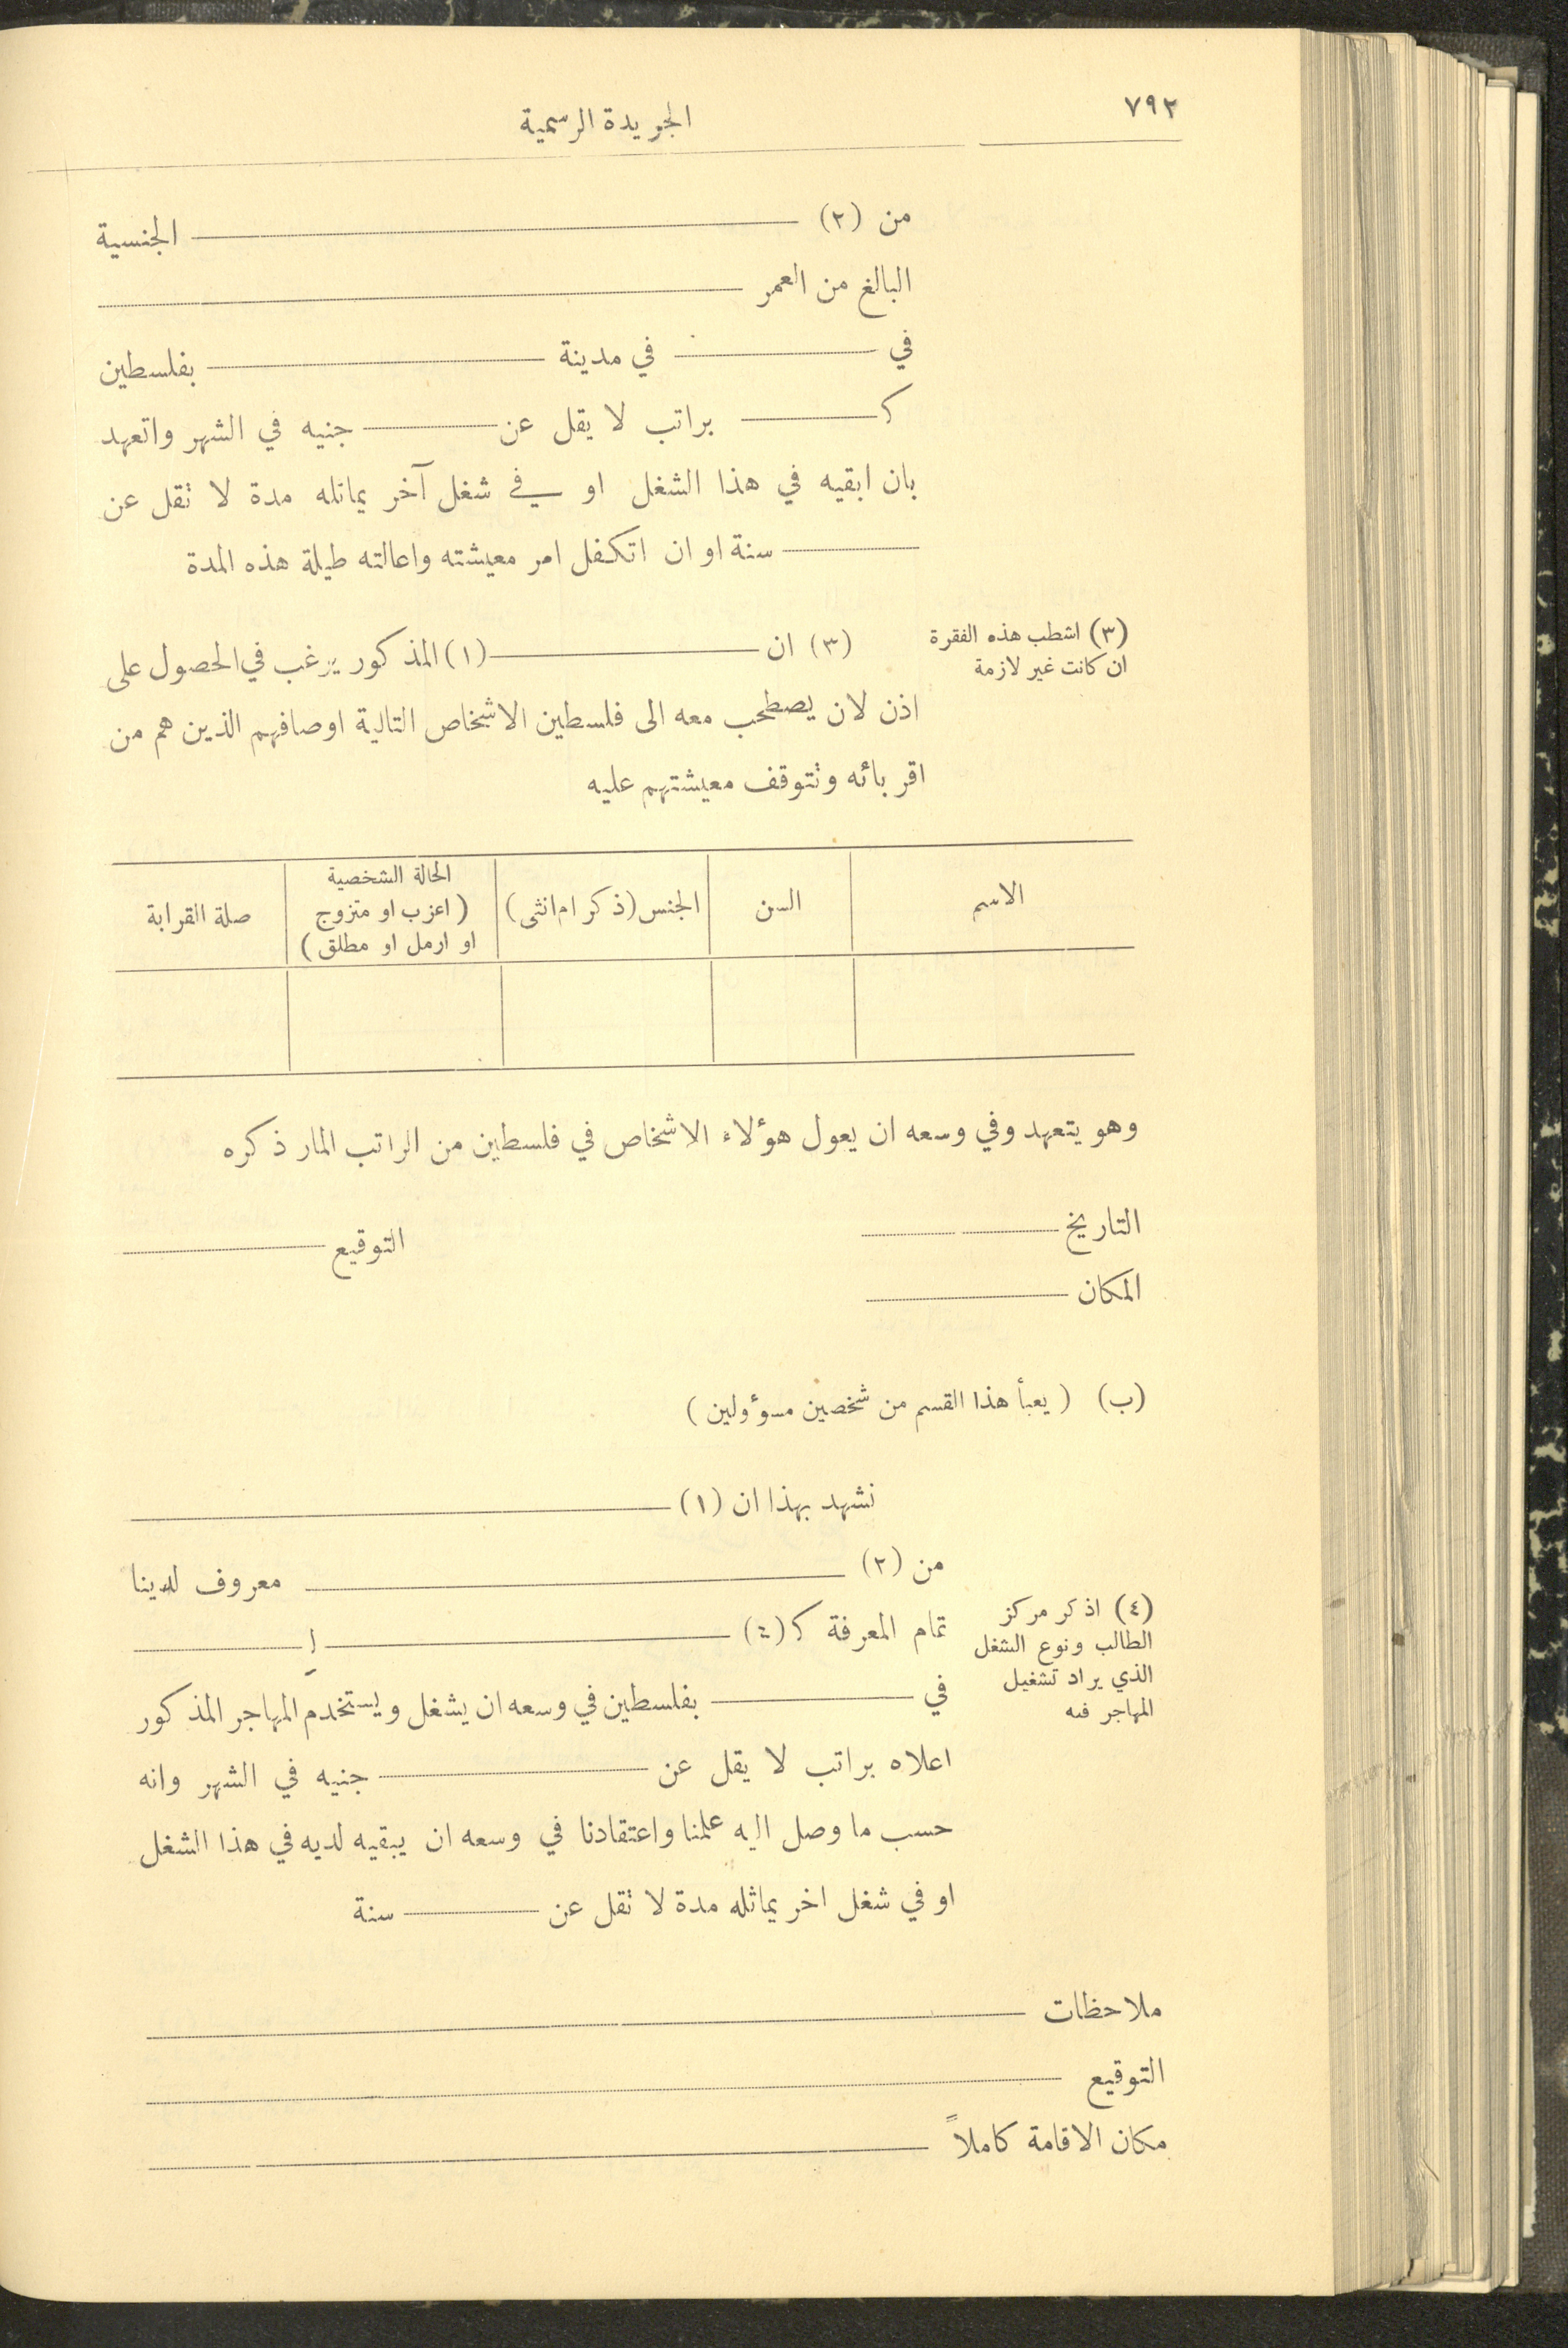 ٧٩٢
الجريدة الرسمية
من (٢) ـــــــــــــــ الجنسية
البالغ من العمر ـــــــــــــــ
في ـــــــــــــــ في مدينة ـــــــــــــــ بفلسطين
كـ ـــــــــــــــ براتب لا يقل عن ـــــــــــــــ جنيه في الشهر واتعهد
بان ابقيه في هذا الشغل او في شغل آخر يماثله مدة لا تقل عن
ـــــــــــــــ سنة او ان اتكفل امر معيشته واعالته طيلة هذه المدة
(٣) اشطب هذه الفقرة
ان كانت غير لازمة
(٣) ان ـــــــــــــــ (١) المذكور يرغب في الحصول على
اذن لان يصطحب معه الى فلسطين الاشخاص التالية اوصافهم الذين هم من
اقربائه وتتوقف معيشتهم عليه
الاسم
السن
الجنس (ذكر ام انثى)
الحالة الشخصية
(اعزب او متزوج
او ارمل او مطلق)
صلة القرابة
وهو يتعهد وفي وسعه ان يعول هؤلاء الاشخاص في فلسطين من الراتب المار ذكره
التاريخ ـــــــــــــــ
التوقيع ـــــــــــــــ
المكان ـــــــــــــــ
(ب) (يعبأ هذا القسم من شخصين مسؤولين)
نشهد بهذا ان (١) ـــــــــــــــ
من (٢) ـــــــــــــــ معروف لدينا
تمام المعرفة كـ (٤) ـــــــــــــــ
(٤) اذكر مركز
الطالب ونوع الشغل
الذي يراد تشغيل
المهاجر فيه
في ـــــــــــــــ بفلسطين في وسعه ان يشغل ويستخدم المهاجر المذكور
اعلاه براتب لا يقل عن ـــــــــــــــ جنيه في الشهر وانه
حسب ما وصل اليه علمنا واعتقادنا في وسعه ان يبقيه لديه في هذا الشغل
او في شغل اخر يماثله مدة لا تقل عن ـــــــــــــــ سنة
ملاحظات ـــــــــــــــ
التوقيع ـــــــــــــــ
مكان الاقامة كاملاً ـــــــــــــــ